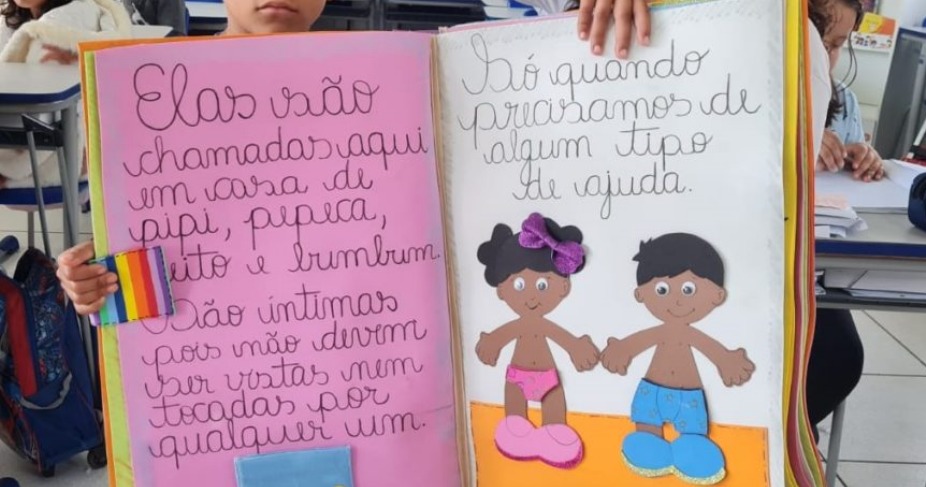 Elas são
chamadas aqui
em casa de
pipi, pepeca,
e bumbum.
São íntimas
pois não devem
ser vistas nem
tocadas por
qualquer um.
Só quando
precisamos de
algum tipo
de ajuda.